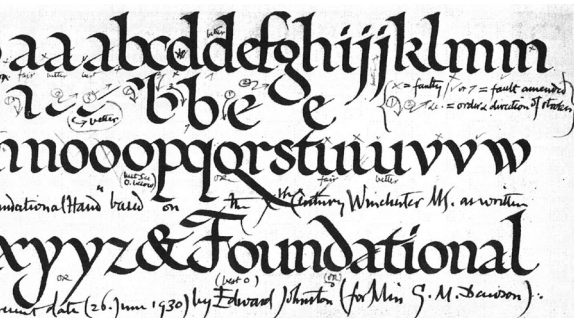 aaabcddefghijjklmm
better
fair better best
x = faulty √ or 1 = fault amended
= order & direction of strokes
better
bbee
nnooopqqrstuuuvvvw
but see O. below OR fair better
undational Hand" based on the Xth Century Winchester MS. as written
xyyyz&Foundational
OR (best O) (OR)
date (26. June 1930) by Edward Johnston (for Miss G. M. Dawson):